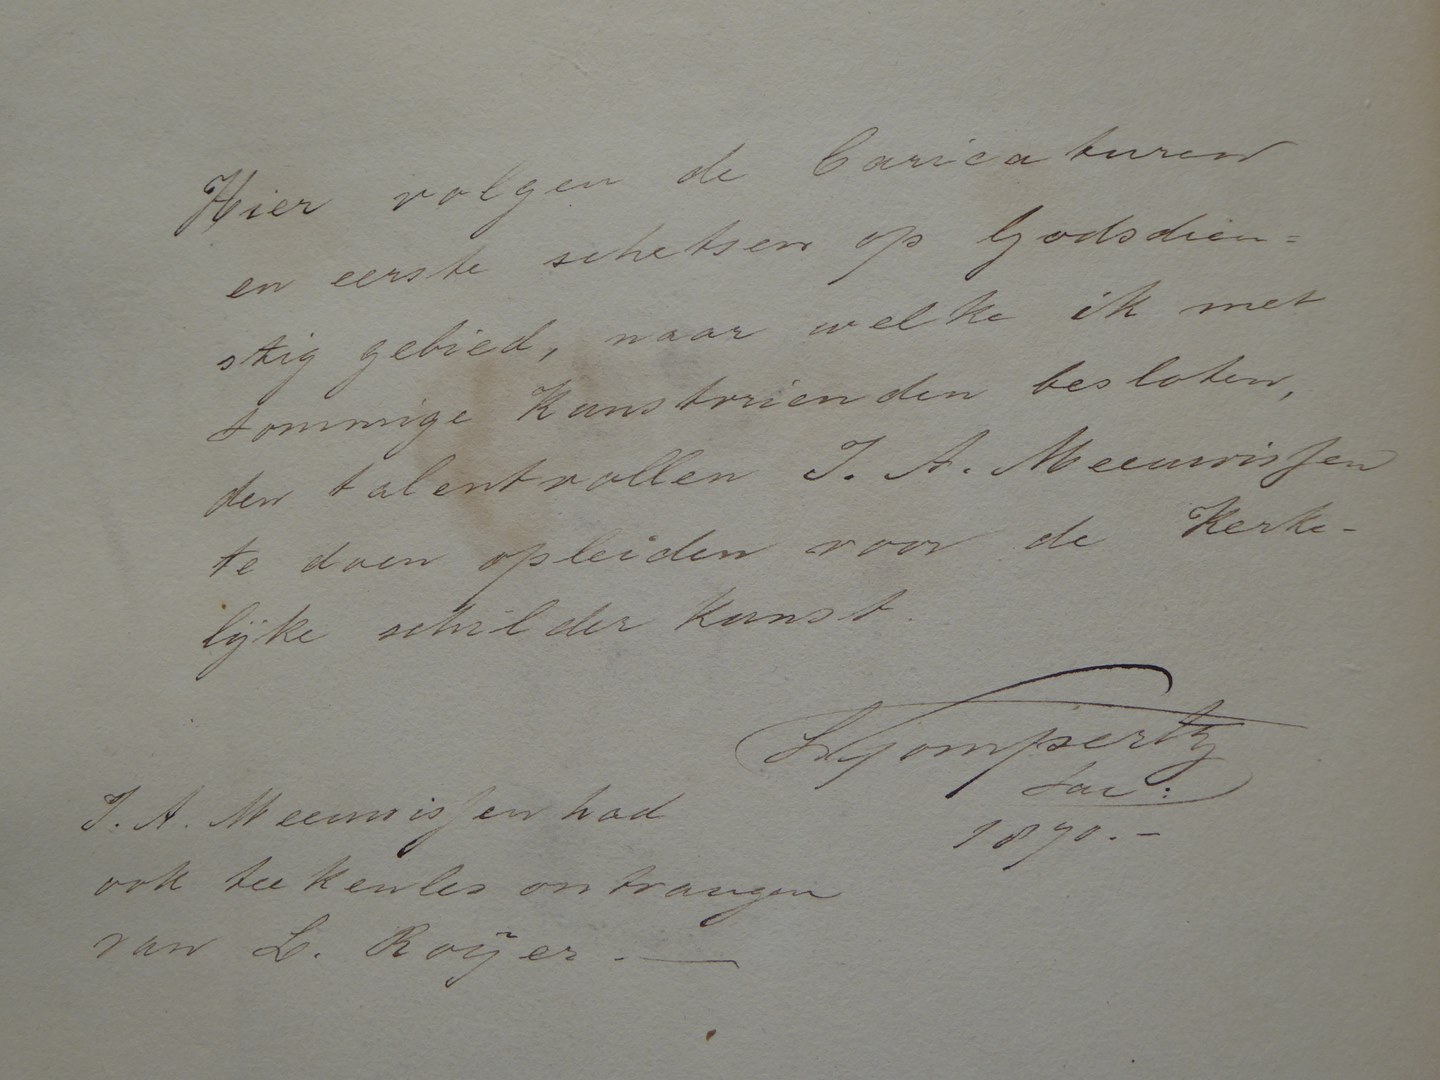 Hier volgen de Caricaturen
en eerste schetsen op Godsdien=
stig gebied, naar welke ik met
sommige Kunstvrienden besloten,
den talentvollen J. A. Meeuwissen
te doen opleiden voor de Kerke-
lijke schilder kunst.
Gompertz
1870.-
J. A. Meeuwissen had
ook teekenles ontvangen
van L. Roijer. —